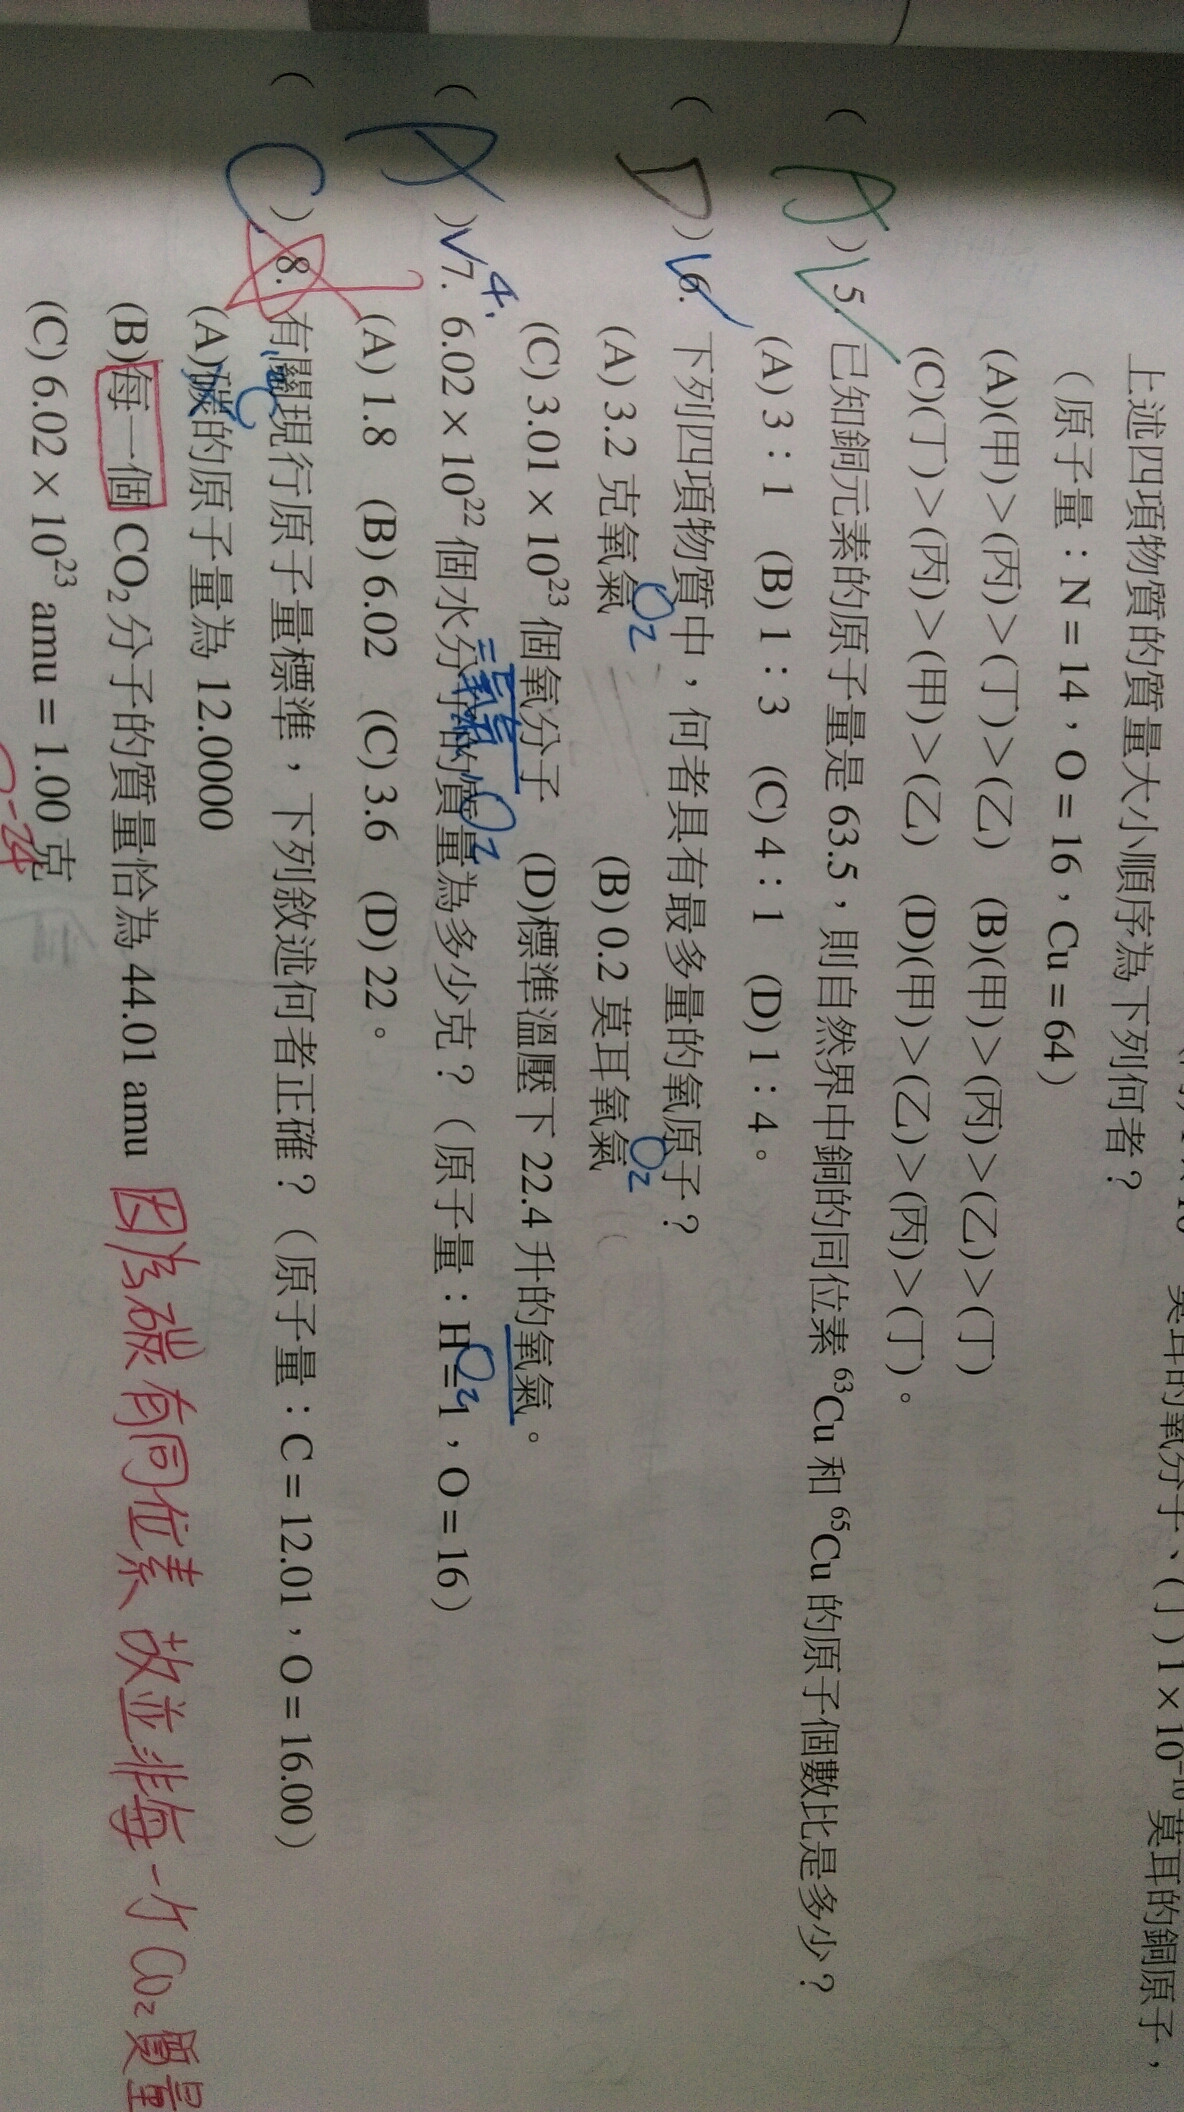 莫耳的氧分子、(丁) 1 × 10⁻¹⁰ 莫耳的銅原子，
上述四項物質的質量大小順序為下列何者？
（原子量：N = 14，O = 16，Cu = 64）
(A)(甲)＞(丙)＞(丁)＞(乙) (B)(甲)＞(丙)＞(乙)＞(丁)
(C)(丁)＞(丙)＞(甲)＞(乙) (D)(甲)＞(乙)＞(丙)＞(丁)。
( A ) 5. 已知銅元素的原子量是 63.5，則自然界中銅的同位素 ⁶³Cu 和 ⁶⁵Cu 的原子個數比是多少？
(A) 3：1 (B) 1：3 (C) 4：1 (D) 1：4。
( D ) 6. 下列四項物質中，何者具有最多量的氧原子？
(A) 3.2 克氧氣 O₂ (B) 0.2 莫耳氧氣 O₂
(C) 3.01 × 10²³ 個氧分子 (D)標準溫壓下 22.4 升的氧氣。
O₂ O₂
( A ) 7. 6.02 × 10²² 個水分子的質量為多少克？（原子量：H = 1，O = 16）
4.
(A) 1.8 (B) 6.02 (C) 3.6 (D) 22。
( C ) 8. 有關現行原子量標準，下列敘述何者正確？（原子量：C = 12.01，O = 16.00）
(A)碳的原子量為 12.0000
(B)每一個 CO₂ 分子的質量恰為 44.01 amu 因為碳有同位素 故並非每一個 CO₂ 質量
(C) 6.02 × 10²³ amu = 1.00 克
-24